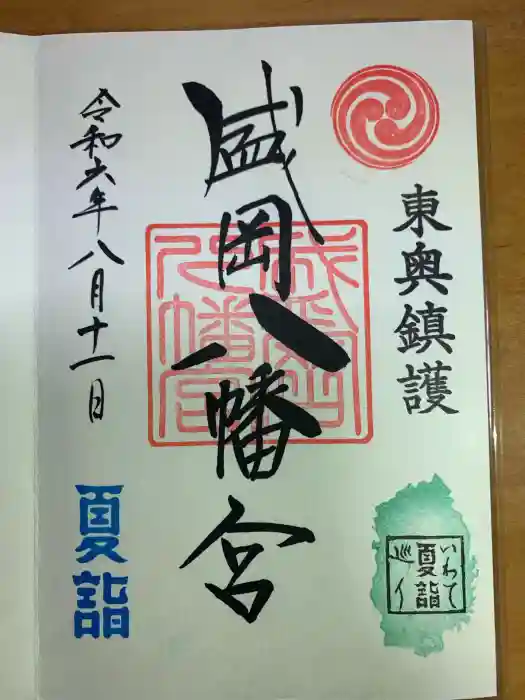 東奥鎮護
いわて
夏詣
巡り
盛岡八幡宮
盛岡八幡宮
令和六年八月十一日
夏詣